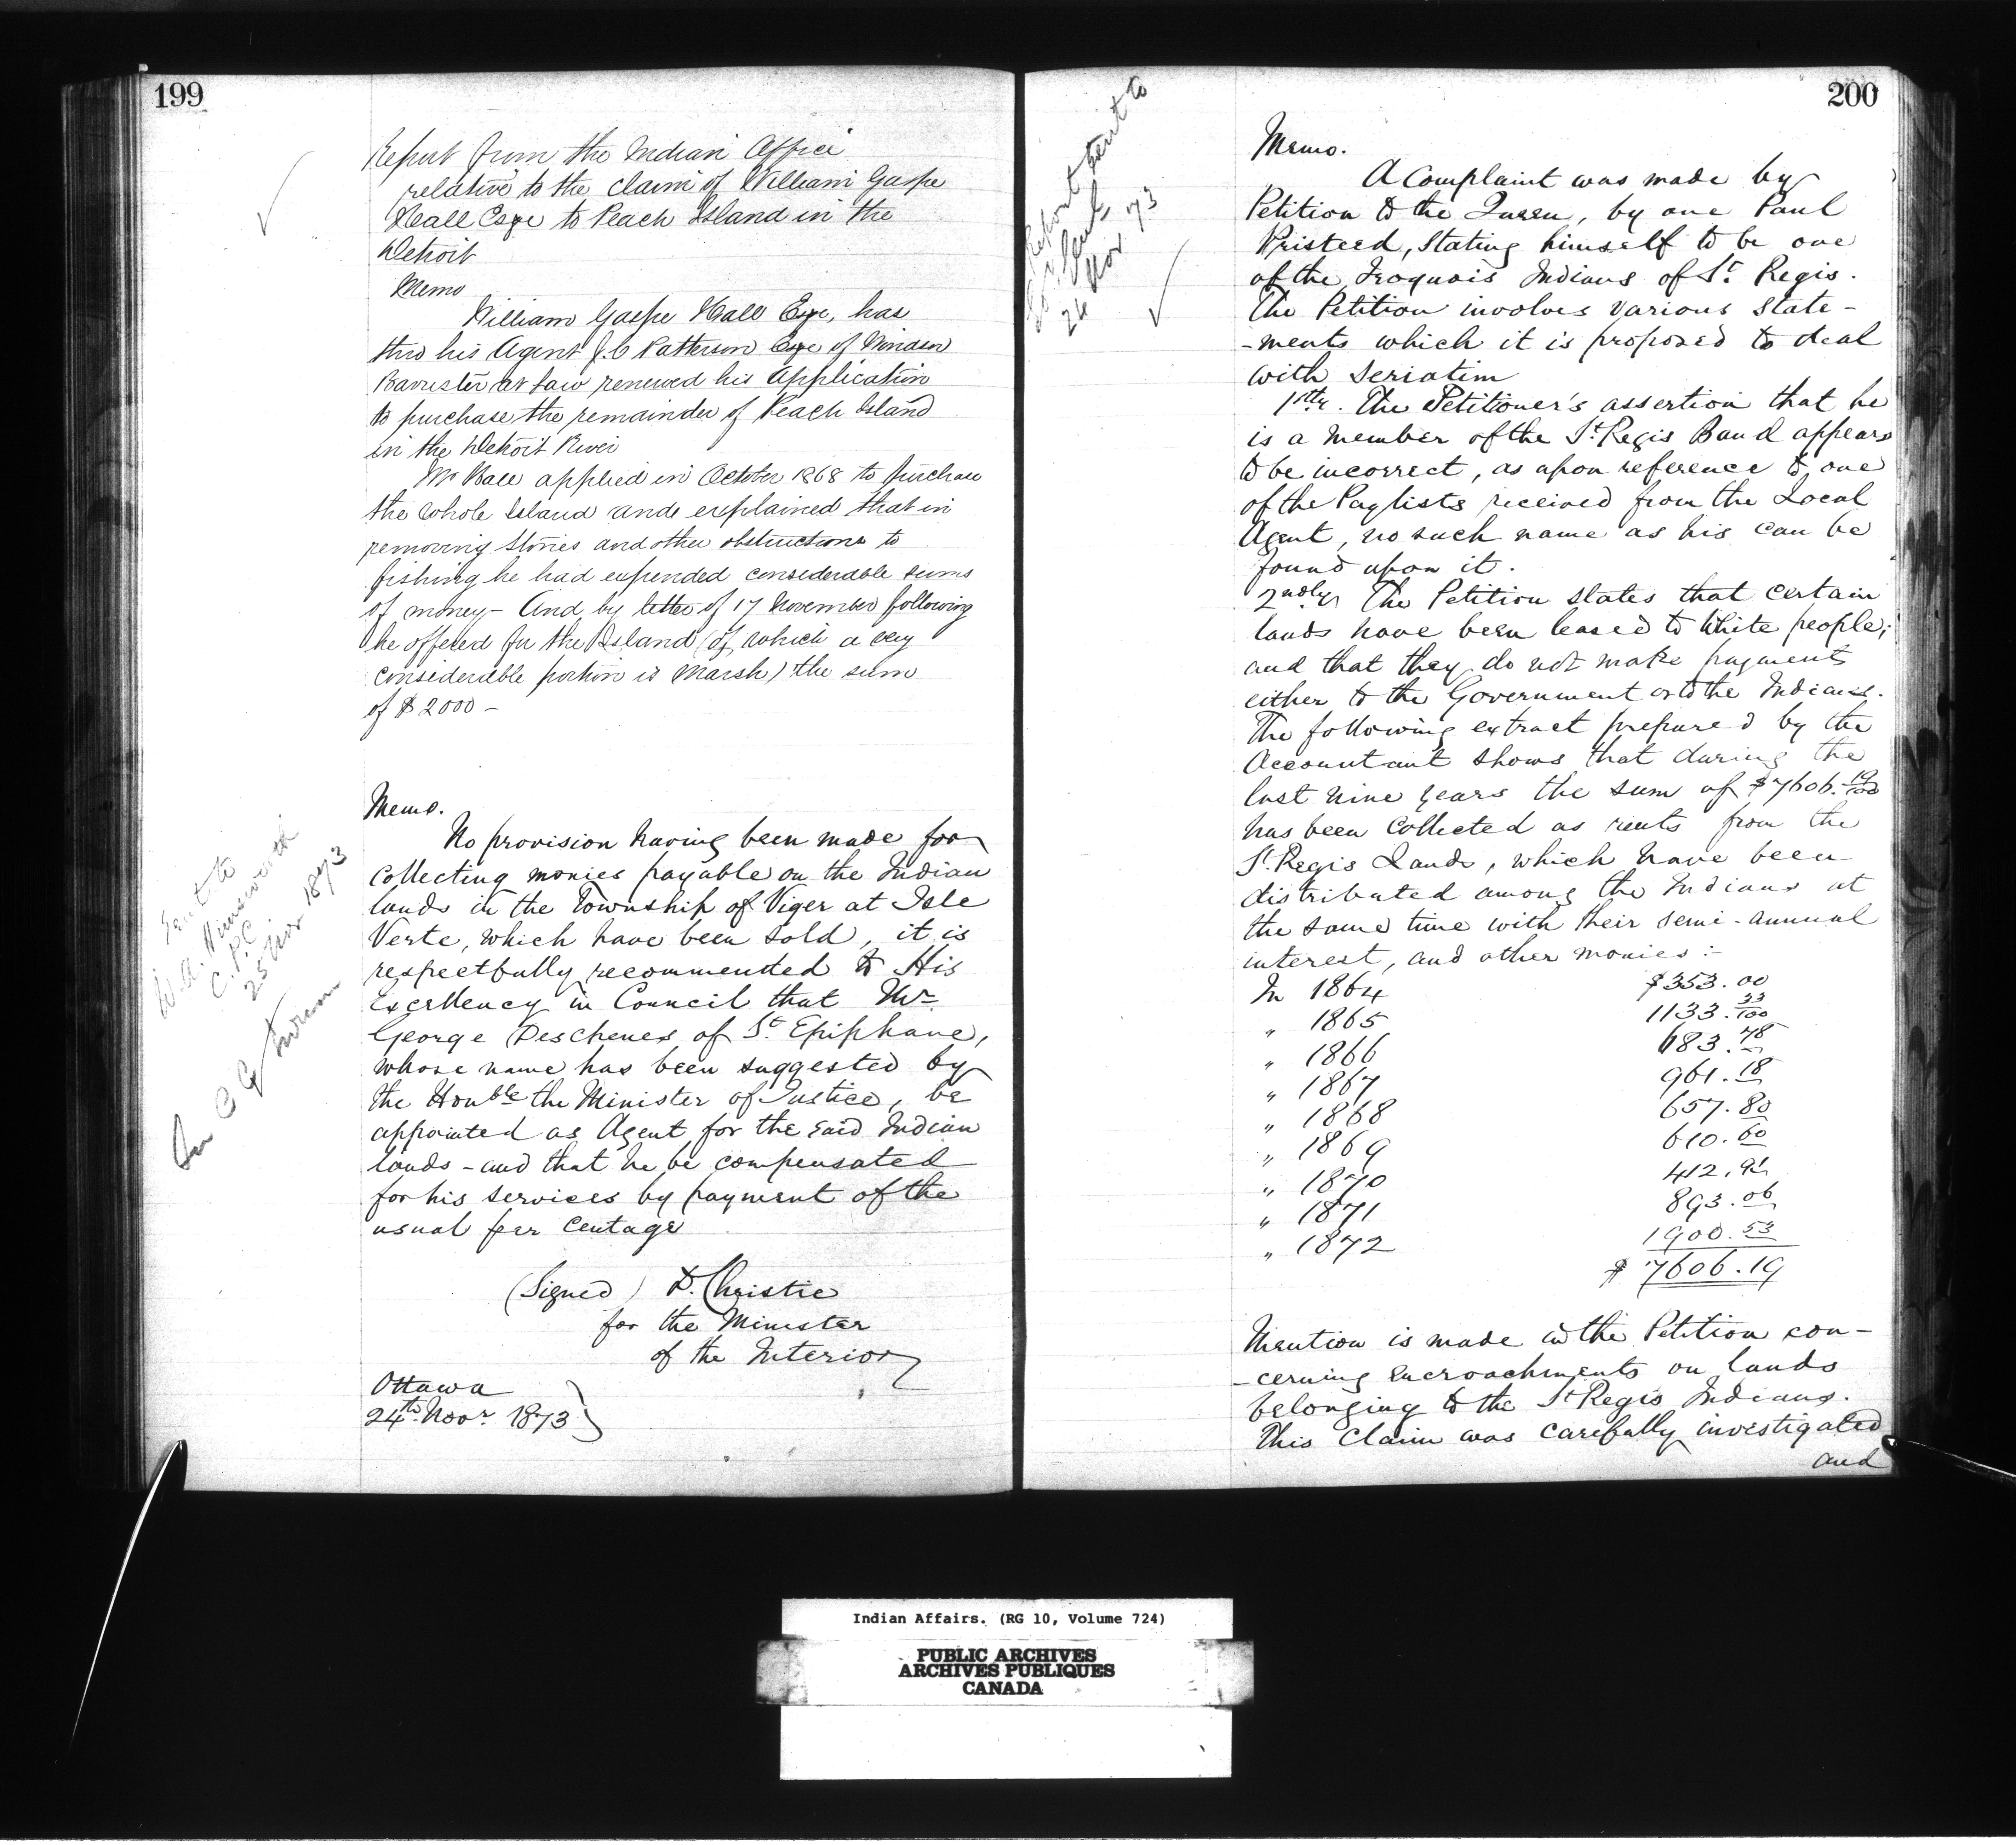 199
Report from the Indian Office
relative to the claim of William Gaspe
Hall Esqe to Peach Island in the
Detroit
Memo
William Gaspe Hall Esqe, has
thro his Agent J. C Patterson Esqe of Windsor
Barrister at Law renewed his Application
to purchase the remainder of Peach Island
in the Detroit River
Mr Hall applied in October 1868 to purchase
the whole Island and explained that in
removing Stones and other obstructions to
fishing he had expended considerable sums
of money - And by letter of 17 November following
he offered for the Island (of which a very
considerable portion is Marsh) the sum
of $2000 -
Memo.
No provision having been made for
collecting monies payable on the Indian
lands in the Township of Viger at Isle
Verte, which have been sold, it is
respectfully recommended to His
Excellency in Council that Mr
George Deschenes of St Epiphane,
whose name has been suggested by
the Honble the Minister of Justice, be
appointed as Agent for the said Indian
lands - and that he be compensated
for his services by payment of the
usual per centage
(Signed) D. Christie
for the Minister
of the Interior
Ottawa
24th Novr 1873
Sent to
W. A. Himsworth
C. P. C
25 Nov 1873
200
Report sent to
24 Nov 73
Memo.
A Complaint was made by
Petition to the Queen, by one Paul
Kristeed, Stating himself to be one
of the Iroquois Indians of St Regis.
The Petition involves various State-
-ments which it is proposed to deal
with seriatim
1stly. The Petitioner's assertion that he
is a member of the St Regis Band appears
to be incorrect, as upon reference to one
of the Paylists received from the Local
Agent, no such name as his can be
found upon it.
2ndly The Petition states that certain
lands have been leased to White people;
and that they do not make payments
either to the Government or to the Indians.
The following extract prepared by the
Accountant shows that during the
last nine years the sum of $7606. 19/100
has been collected as rents from the
St. Regis Lands, which have been
distributed among the Indians at
the same time with their semi-annual
interest, and other monies :-
In 1864 $353.00
" 1865 1133.33/100
" 1866 683.78
" 1867 961.18
" 1868 657.80
" 1869 610.60
" 1870 412.91
" 1871 893.06
" 1872 1900.53
$ 7606.19
Mention is made in the Petition con-
-cerning encroachments on lands
belonging to the St Regis Indians.
This Claim was carefully investigated
and
Indian Affairs. (RG 10, Volume 724)
PUBLIC ARCHIVES
ARCHIVES PUBLIQUES
CANADA